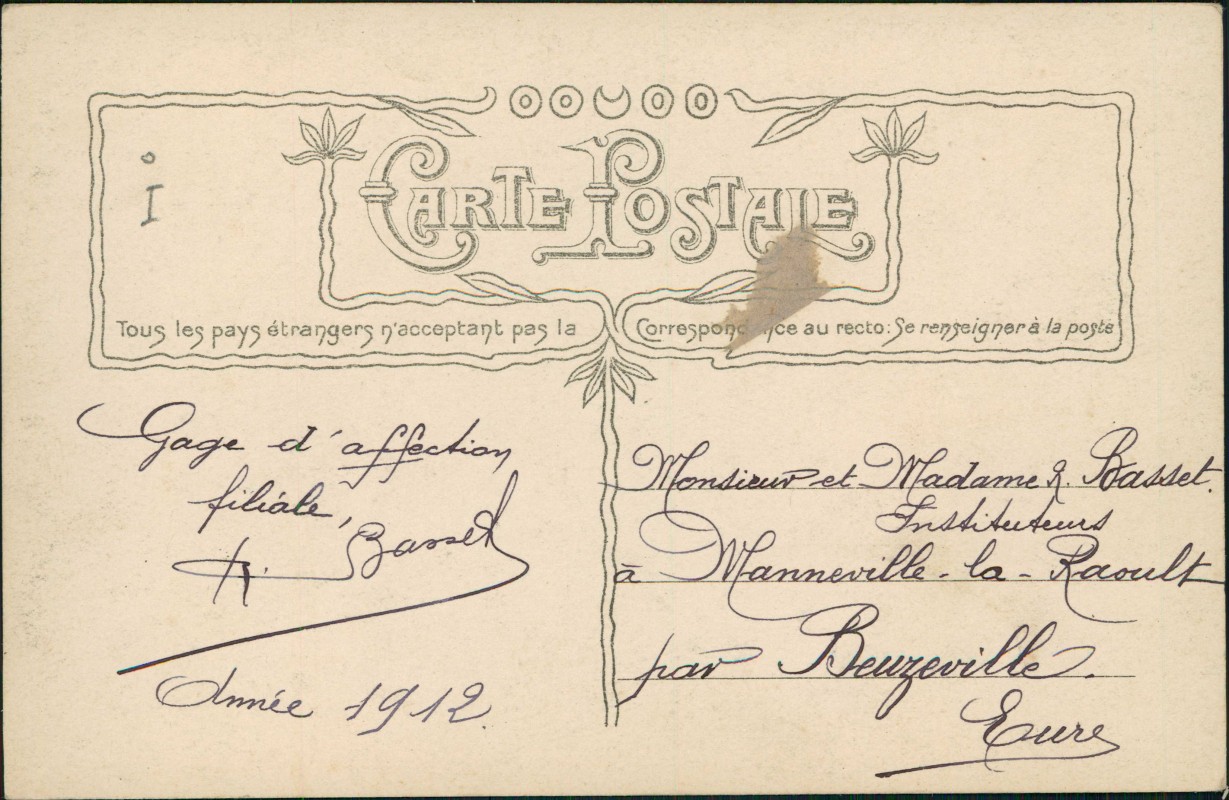 I
CARTE POSTALE
Tous les pays étrangers n'acceptant pas la Correspondance au recto: Se renseigner à la poste
Gage d'affection
filiale,
R. Basset
Année 1912
Monsieur et Madame R. Basset.
Instituteurs
à Manneville-la-Raoult
par Beuzeville.
Eure